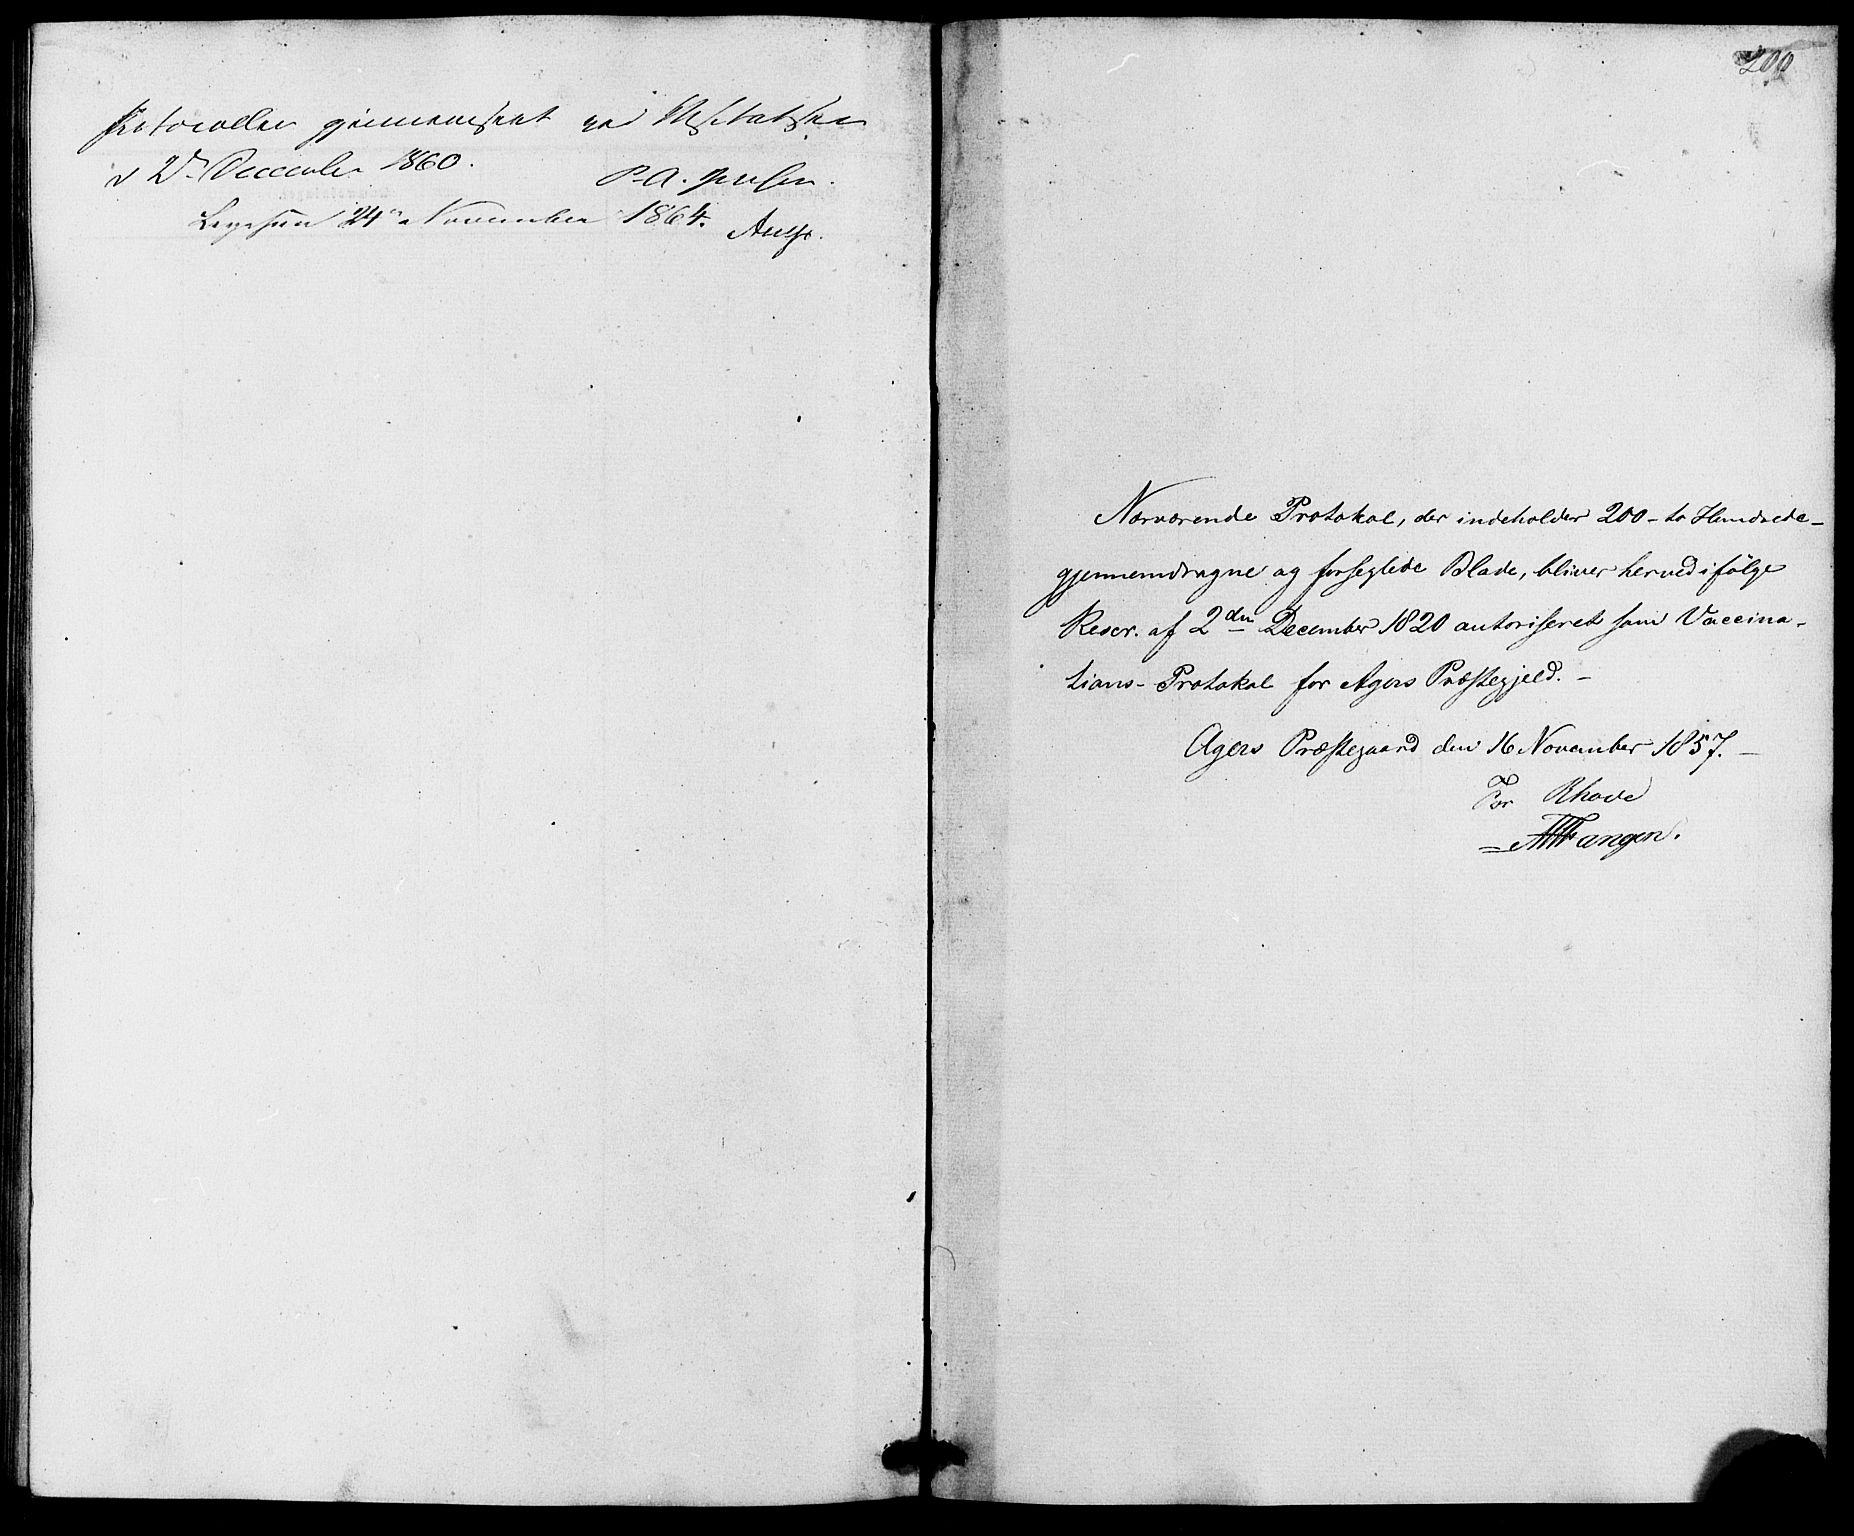 Protocollen gjennemseet ved Visitatsen
d 2den December 1860. P. A. Jensen.
Ligesaa 24de November 1864.
200
Nærværende Protokol, der indeholder 200 - to Hundrede -
gjennemdragne og forseglede Blade, bliver herved ifölge
Rescr. af 2den December 1820 autoriseret som Vaccina-
tions-Protokol for Agers Præstegjeld. -
Agers Præstegaard den 16 November 1857. -
For Rhode
Fangen.